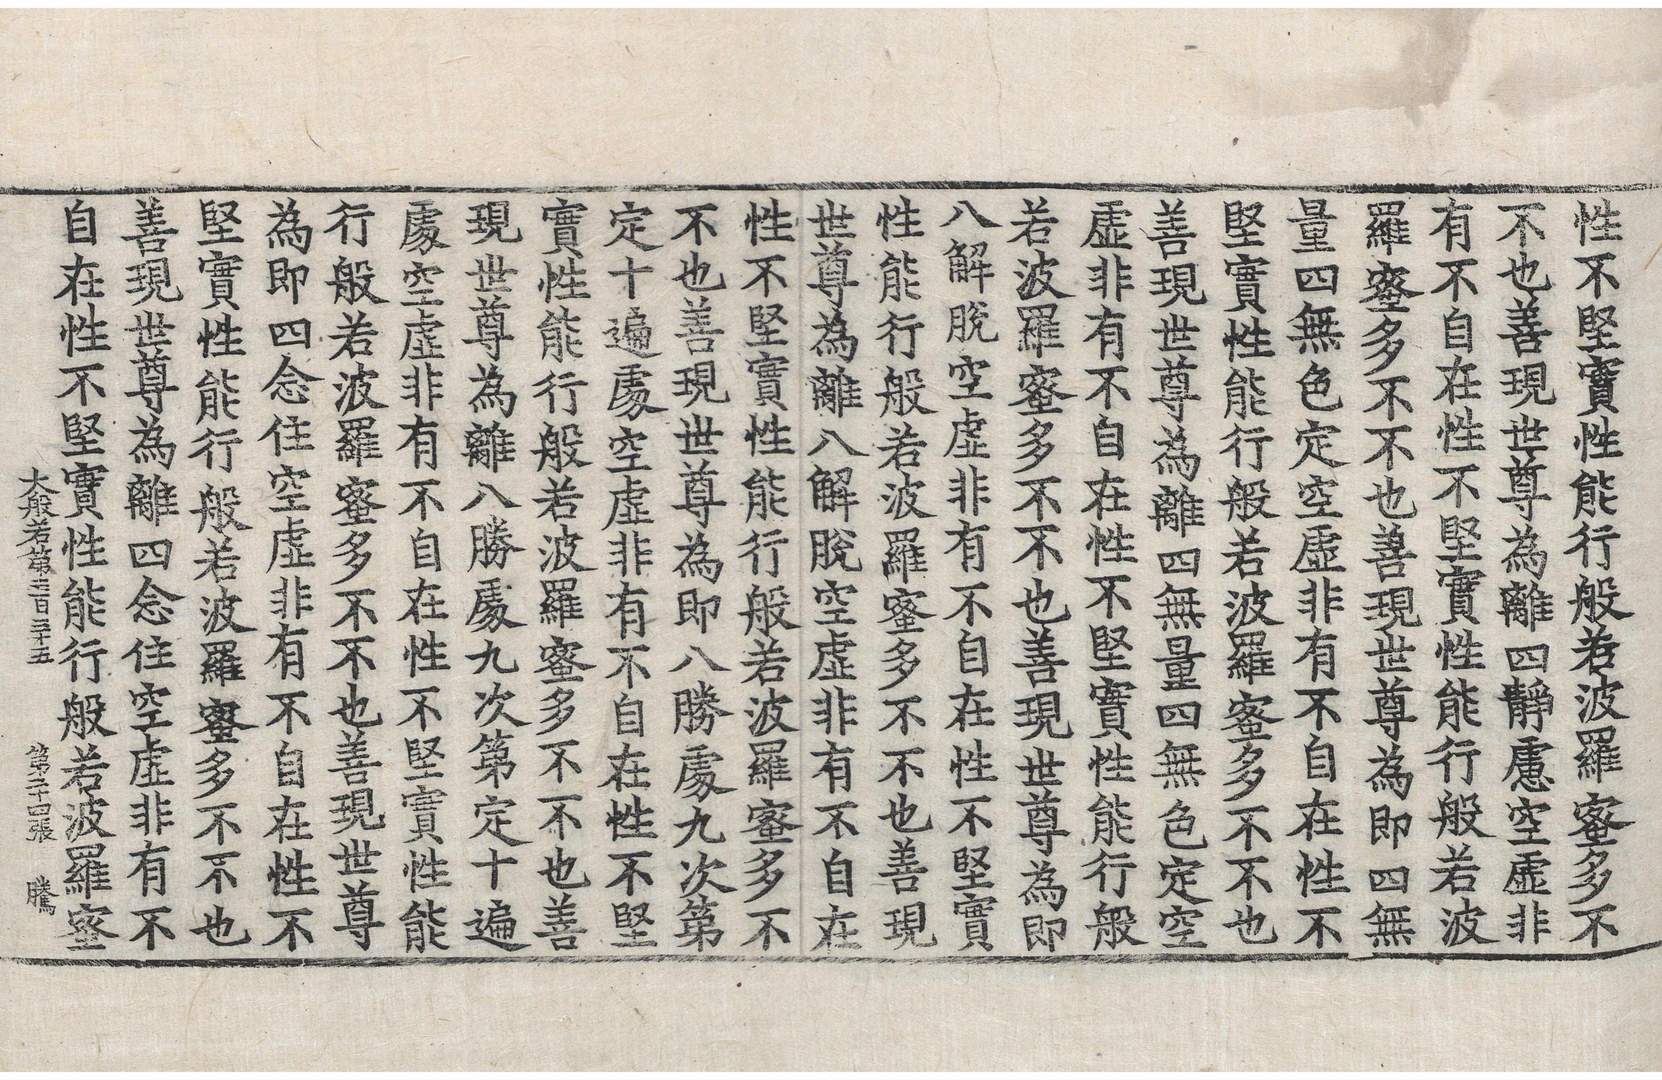 性不堅實性能行般若波羅蜜多不
不也善現世尊為離四靜慮空虛非
有不自在性不堅實性能行般若波
羅蜜多不不也善現世尊為即四無
量四無色定空虛非有不自在性不
堅實性能行般若波羅蜜多不不也
善現世尊為離四無量四無色定空
虛非有不自在性不堅實性能行般
若波羅蜜多不不也善現世尊為即
八解脫空虛非有不自在性不堅實
性能行般若波羅蜜多不不也善現
世尊為離八解脫空虛非有不自在
性不堅實性能行般若波羅蜜多不
不也善現世尊為即八勝處九次第
定十遍處空虛非有不自在性不堅
實性能行般若波羅蜜多不不也善
現世尊為離八勝處九次第定十遍
處空虛非有不自在性不堅實性能
行般若波羅蜜多不不也善現世尊
為即四念住空虛非有不自在性不
堅實性能行般若波羅蜜多不不也
善現世尊為離四念住空虛非有不
自在性不堅實性能行般若波羅蜜
大般若第三百三十五 第二十四張 騰